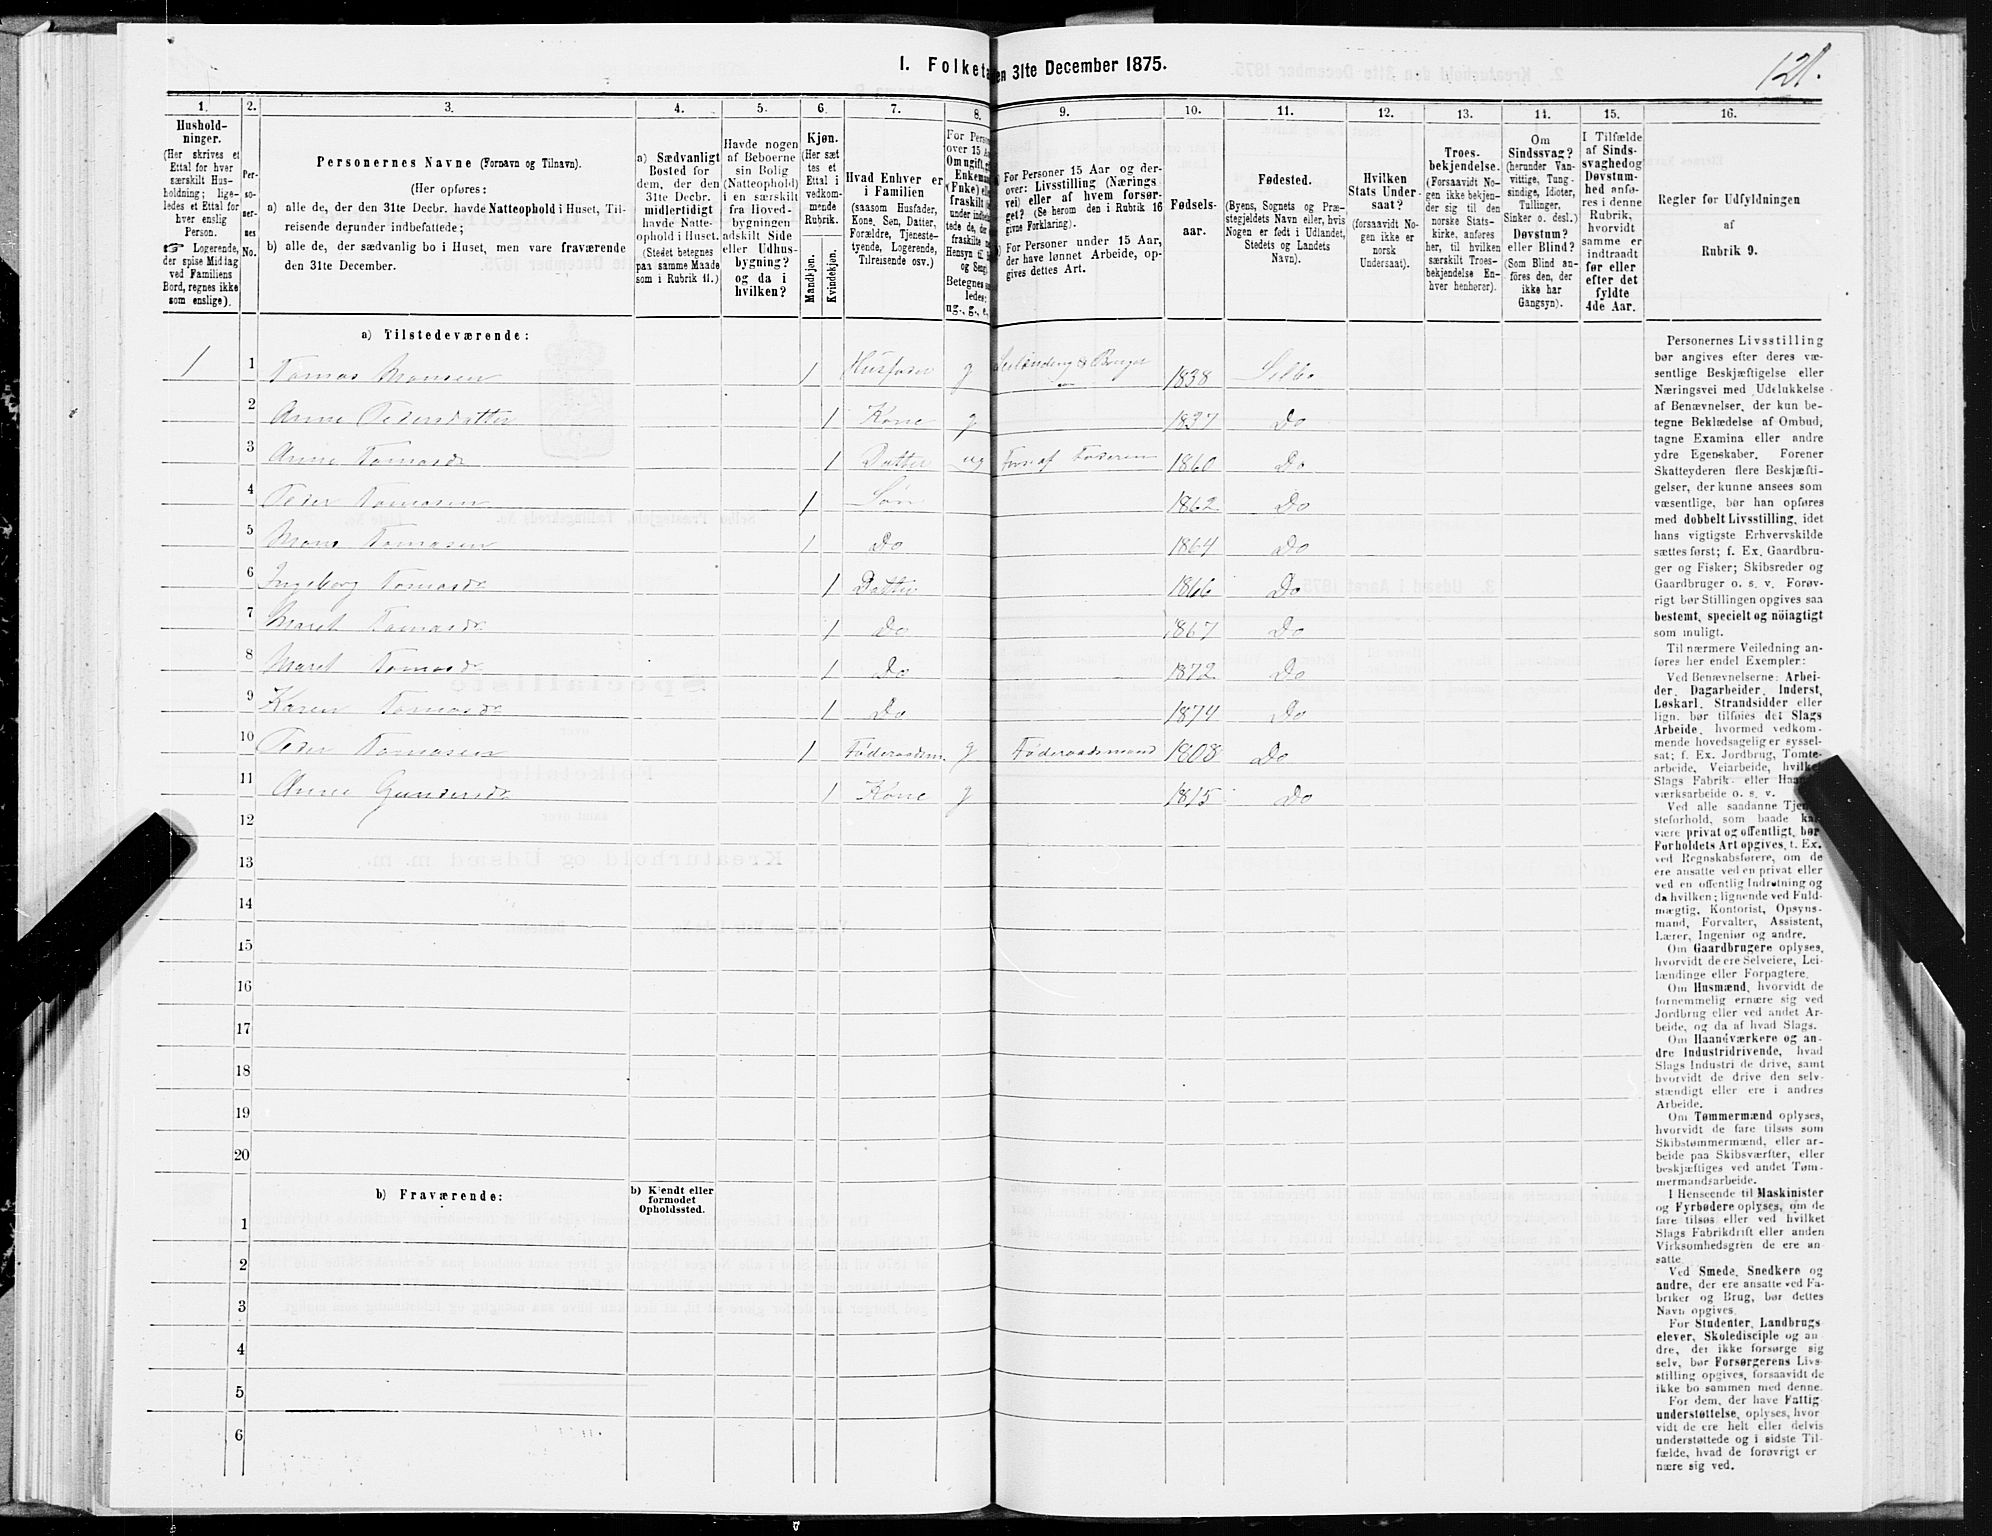 121.
I. Folketa en 31te December 1875.
1. 2. 3. 4. 5. 6. 7. 8. 9. 10. 11. 12. 13. 14. 15. 16.
Hushold-
ninger.
(Her skrives et
Ettal for hver
særskilt Hus-
holdning; lige-
ledes et Ettal for
hver enslig
Person.
☞ Logerende,
der spise Middag
ved Familiens
Bord, regnes ikke
som enslige).
Per-
so-
ner-
nes
No.
Personernes Navne (Fornavn og Tilnavn).
(Her opføres:
a) alle de, der den 31te Decbr. havde Natteophold i Huset, Til-
reisende derunder indbefattede;
b) alle de, der sædvanlig bo i Huset, men vare fraværende
den 31te December.
a) Sædvanligt
Bosted for
dem, der den
31te Decbr.
midlertidigt
havde Natte-
ophold i Huset.
(Stedet betegnes
paa samme Maade
som i Rubrik 11.)
Havde nogen
af Beboerne
sin Bolig
(Natteophold)
i en særskilt
fra Hoved-
bygningen
adskilt Side
eller Udhus-
bygning?
og da i
hvilken?
Kjøn.
(Her sæt
tes et
Ettal i
vedkom-
mende
Rubrik.
Mandkjøn.
Kvindekjøn.
Hvad Enhver er
i Familien
(saasom Husfader,
Kone, Søn, Datter,
Forældre, Tjeneste-
tyende, Logerende,
Tilreisende osv.)
For Person
over 15 Aa
Om ugift, g
Enkeman
(Enke) elle
fraskilt
under indbe
tede de, de
fraskilte
Hensyn til
og Seng
Betegnes s
ledes:
ug., g., e.,
For Personer 15 Aar og der-
over: Livsstilling (Nærings
vei) eller af hvem forsør-
get? (Se herom den i Rubrik 16
givne Forklaring).
For Personer under 15 Aar,
der have lønnet Arbeide, op-
gives dettes Art.
Fødsels-
aar.
Fødested.
(Byens, Sognets og Præ-
stegjeldets Navn eller, hvis
Nogen er født i Udlandet,
Stedets og Landets
Navn).
Hvilken
Stats Under-
saat?
(forsaavidt No-
gen ikke er
norsk
Undersaat).
Troes-
bekjendelse.
(Forsaavidt No-
gen ikke bekjen-
der sig til den
norske Stats-
kirke, anføres
her, til hvilken
særskilt Troes-
bekjendelse En-
hver henhører).
Om
Sindssvag?
(herunder Van-
vittige, Tung-
sindige, Idioter,
Tullinger,
Sinker o. desl.)
Døvstum?
eller Blind?
(Som Blind an-
føres den, der
ikke har
Gangsyn).
I Tilfælde
af Sinds-
svaghed og
Døvstum-
hed anfø-
res i denne
Rubrik,
hvorvidt
samme er
indtraadt
før eller
efter det
fyldte
4de Aar.
Regler for Udfyldningen
af
Rubrik 9.
a) Tilstedeværende:
1 1 Tomas Monsen 1 Husfader g Leilænding & Borget 1838 Selbo
2 Anne Pedersdatter 1 Kone g 1837 Do
3 Anne Tomasdr 1 Datter ug Fors af Faderen 1860 Do
4 Peder Tomasen 1 Søn 1862 Do
5 Mons Tomasen 1 Do 1864 Do
6 Ingeborg Tomasdr 1 Datter 1866 Do
7 Maret Tomasdr 1 Do 1867 Do
8 Maret Tomasdr 1 Do 1872 Do
9 Karen Tomasdr 1 Do 1874 Do
10 Peder Tomasen 1 Føderaadsm. g Føderaadsmand 1808 Do
11 Anne Gundersdr 1 Kone g 1815 Do
12
13
14
15
16
17
18
19
20
b) Fraværende:
b) Kjendt eller
formodet
Opholdssted.
1
2
3
4
5
6
Personernes Livsstilling
bør angives efter deres væ-
sentlige Beskjæftigelse eller
Næringsvei med Udelukkelse
af Benævnelser, der kun be-
tegne Beklædelse af Ombud,
tagne Examina eller andre
ydre Egenskaber. Forener
Skatteyderen flere Beskjæfti-
gelser, der kunne ansees som
væsentlige, bør han opføres
med dobbelt Livsstilling, idet
hans vigtigste Erhvervskilde
sættes først; f. Ex. Gaardbru-
ger og Fisker; Skibsreder og
Gaardbruger o. s. v. Forøv-
rigt bør Stillingen opgives saa
bestemt, specielt og nöiagtigt
som muligt.
Til nærmere Veiledning an-
føres her endel Exempler:
Ved Benævnelserne: Arbei-
der, Dagarbeider, Inderst,
Løskarl, Strandsidder eller
lign. bør tilføies det Slags
Arbeide, hvormed vedkom-
mende hovedsagelig er syssel-
sat; f. Ex. Jordbrug, Tomte-
arbeide, Veiarbeide, hvilket
Slags Fabrik- eller Haand-
værksarbeide o. s. v.
Ved alle saadanne Tjene-
steforhold, som baade kan
være privat og offentligt, bør
Forholdets Art opgives, f. Ex.
ved Regnskabsførere, om de
ere ansatte ved en privat eller
ved en offentlig Indretning og
da hvilken; lignende ved Fuld-
mægtig, Kontorist, Opsyns-
mand, Forvalter, Assistent,
Lærer, Ingeniør og andre.
Om Gaardbrugere oplyses,
hvorvidt de ere Selveiere, Lei-
lændinge eller Forpagtere.
Om Husmænd, hvorvidt de
fornemmelig ernære sig ved
Jordbrug eller ved andet Ar-
beide, og da af hvad Slags.
Om Haandværkere og an-
dre Industridrivende, hvad
Slags Industri de drive, samt
hvorvidt de drive den selv-
stændigt eller ere i andres
Arbeide.
Om Tømmermænd oplyses,
hvorvidt de fare tilsøs som
Skibstømmermænd, eller ar-
beide paa Skibsværfter, eller
beskjæftiges ved andet Tøm-
mermandsarbeide.
I Henseende til Maskinister
og Fyrbødere oplyses, om de
fare tilsøs eller ved hvilket
Slags Fabrikdrift eller anden
Virksomhedsgren de ere an-
satte.
Ved Smede, Snedkere og
andre, der ere ansatte ved Fa-
briker og Brug, bør dettes
Navn opgives.
For Studenter, Landbrugs-
elever, Skoledisciple og an-
dre, der ikke forsørge sig
selv, bør Forsørgerens Livs-
stilling opgives, forsaavidt de
ikke bo sammen med denne.
For dem, der have Fattig-
understøttelse, oplyses, hvor-
vidt de ere helt eller delvis
understøttede og i sidste Til-
fælde, hvad de forøvrigt er
nære sig ved.